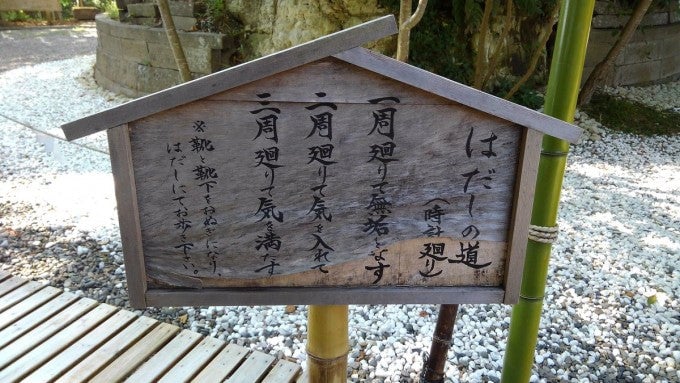 はだしの道
(時計廻り)
一周廻りて無垢となす
二周廻りて気を入れて
三周廻りて気を満たす
※靴と靴下をおぬぎになり、
はだしにてお歩き下さい。